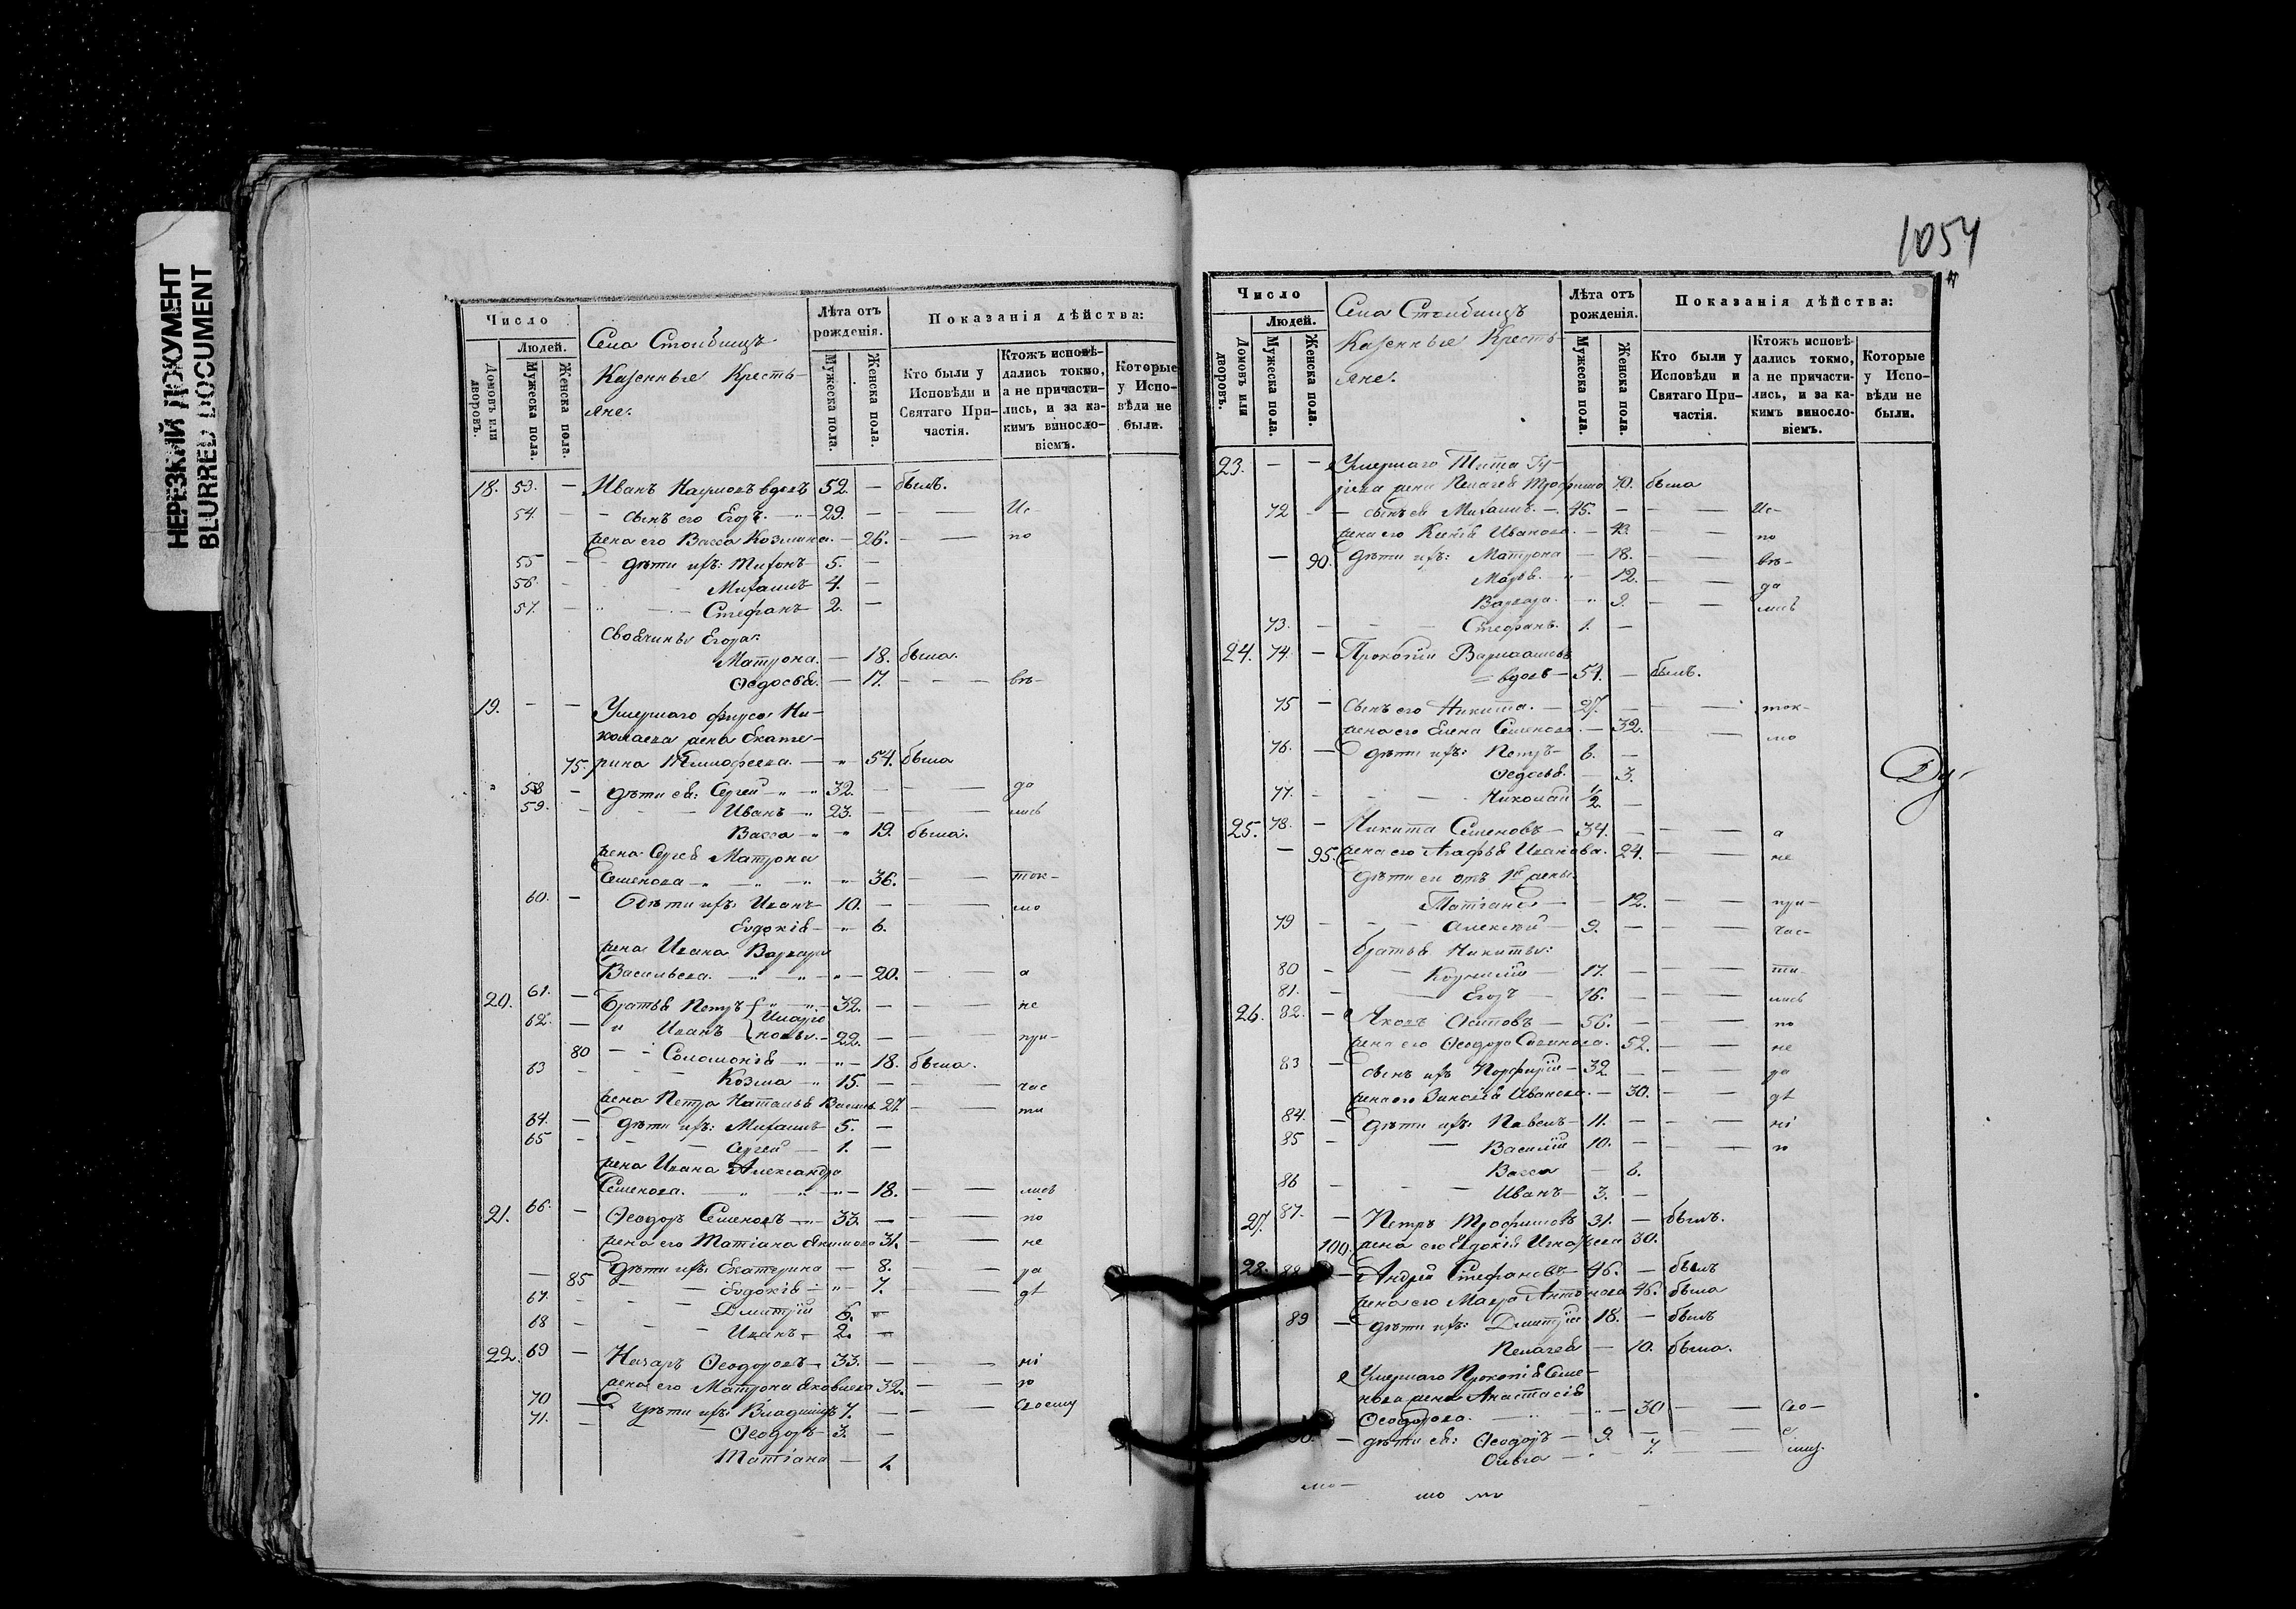 НЕРЕЗКИЙ ДОКУМЕНТ
BLURRED DOCUMENT
Число
Людей.
Домовъ или дворовъ.
Мужеска пола.
Женска пола.
Села Столбищъ
Казенные Кресть-
яне.
Лѣта отъ рожденія.
Мужеска пола.
Женска пола.
Показанія дѣйства:
Кто были у Исповѣди и Святаго При-частія.
Ктожъ исповѣ-дались токмо, а не причасти-лись, и за ка-кимъ винosло-віемъ.
Которые у Испо-вѣди не были.
18. 53. — Иванъ Наумовъ вдовъ 52. — былъ.
54. — — сынъ его Егоръ. — 29. — — — Ис-
жена его Васса Козмина. — 26. — — по
55 — дѣти ихъ: Тихонъ 5. —
56. — — Михаилъ 4. —
57. — — Стефанъ 2. —
Своячины Егора:
Матрона. — 18. была.
Ѳедосья. — 17. — — — вѣ-
19. — — Умершаго Фирса Ни-
колаева жена Екате-
75. рина Тимофеева. — 54. была
58 — дѣти ея: Сергей 32. — — да
59. — — Иванъ 23. — — лись
Васса — 19. была.
жена Сергея Матрона
Семенова — 36. — — ток-
60. — дѣти ихъ: Иванъ 10. — — мо
Евдокія — 6.
жена Ивана Варвара
Васильева. — 20. — — а
20. 61. — Братья Петръ 32. — — не
62. — Иванъ — 22. — — при-
80 — Соломонія — 18. была.
63 — Козма 15. — — час
жена Петра Наталья Васил. 27. — — ти
64. — дѣти ихъ: Михаилъ 5. —
65 — Сергей — 1. —
жена Ивана Александра
Семенова. — 18. — — лись
21. 66. — Ѳеодоръ Семеновъ — 33. — — по
жена его Татіана 31. — не
дѣти ихъ: Екатерина — 8. — ра
85 — Евдокія — 7. — дѣ
67. — Дмитрій 6. —
68 — Иванъ — 2. —
22. 69 — Назаръ Ѳеодоровъ — 33. — — ні
жена его Матрона Яковлева 32. — — ю
70 — дѣти ихъ: Владиміръ 7. — — своему
71. — Ѳеодоръ 3. —
Татіана — 1.
1054
Число
Людей.
Домовъ или дворовъ.
Мужеска пола.
Женска пола.
Села Столбищъ
Казенные Кресть-
яне.
Лѣта отъ рожденія.
Мужеска пола.
Женска пола.
Показанія дѣйства:
Кто были у Исповѣди и Святаго При-частія.
Ктожъ исповѣ-дались токмо, а не причасти-лись, и за ка-кимъ винosло-віемъ.
Которые у Испо-вѣди не были.
23. — — Умершаго Тита Гу-
рьева жена Пелагея Трофимо 70. была
72 — — сынъ ея Михаилъ — 45. — — — Ис-
жена его Ксенія Иванова — 43. — — по
— 90. дѣти ихъ: Матрона — 18. — — вѣ-
Марья. — 12. — — да
Варвара. — 9. — — лись
73. — — — Стефанъ. 1. —
24. 74. — Прокопій Варлаамовъ
вдовъ — 54. — былъ.
75 — сынъ его Никита. — 27. — — ток-
жена его Елена Семенова. — 32. — — мо
76. — дѣти ихъ: Петръ — 6. —
Ѳедосья. — 3.
77. — — — Николай 1/2 —
Ду-
25. 78. — Никита Семеновъ — 34. — — — а
— 95. жена его Агафья Иванова. 24. — — не
дѣти его отъ 1й жены:
Татіана — — 12. — — при-
79 — — Алексѣй — 9. — — — час-
братья Никиты:
80 — — Корнилій — 17. — — — ти-
81. — — Егоръ — 16. — — — лись
26. 82. — Яковъ Осиповъ — 56. — — — по
жена его Ѳеодора Савинова. 52. — — не
83 — сынъ ихъ Порфирій — 32 — — — ра
жена его Зиновія Иванова. — 30. — — дѣ
84. — дѣти ихъ: Павелъ — 11. — — — ні
85 — — Василій 10. — — — ю
Васса — 6.
86 — — — Иванъ — 3. —
27. 87. — Петръ Трофимовъ 31. — былъ.
100. жена его Евдокія Игнатьева 30.
28. 88 — Андрей Стефановъ — 46. — былъ
жена его Мавра Антонова 46. была
89 — дѣти ихъ: Дмитрій 18. — былъ
Пелагея — 10. была.
Умершаго Прокопія Семе-
нова жена Анастасія
Ѳеодорова. — 30 — — сво-
90. — дѣти ея: Ѳеодоръ — 9. — — — е
Ольга — 7. — — му.